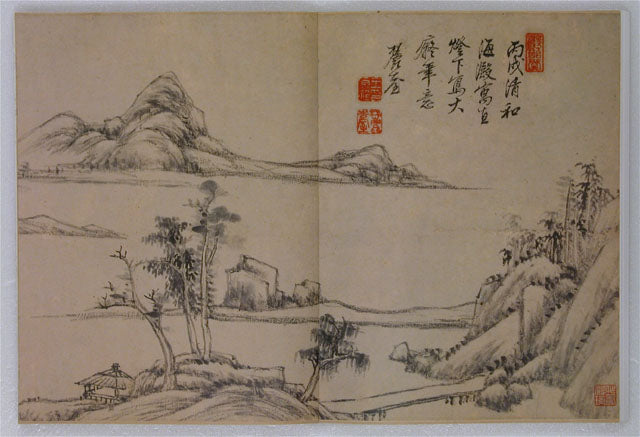 丙戌清和
海澱寓直
燈下寫大
癡筆意
麓臺